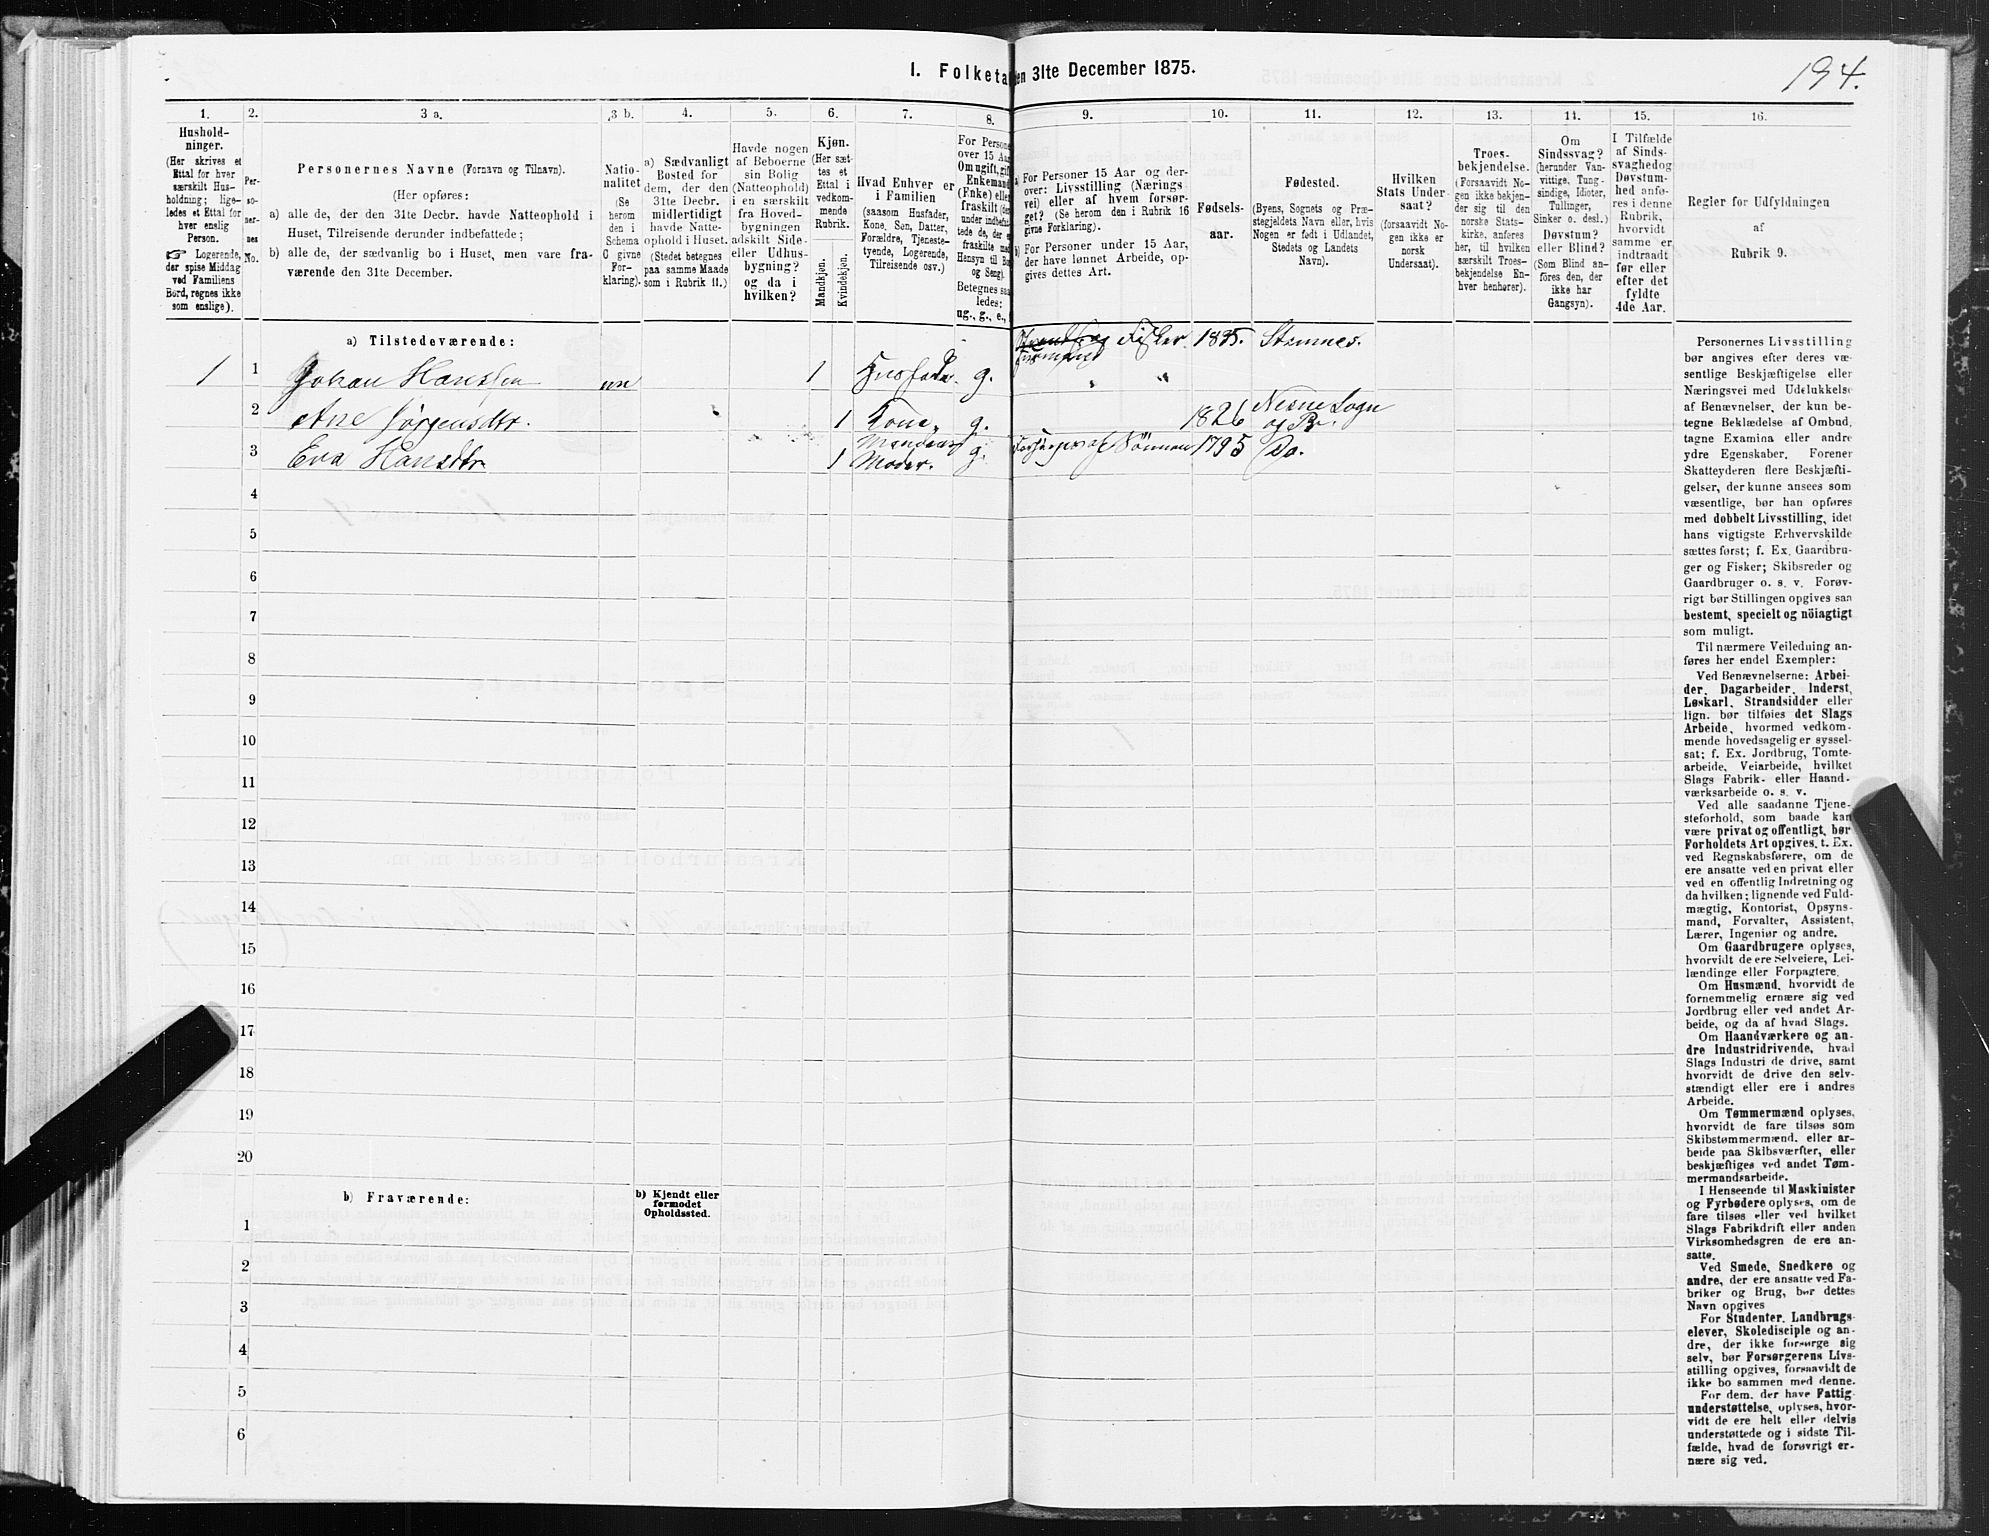 I. Folketal den 31te December 1875.
194.
1.
2.
3 a.
3 b.
4.
5.
6.
7.
8.
9.
10.
11.
12.
13.
14.
15.
16.
Hushold-
ninger.
(Her skrives et
Ettal for hver
særskilt Hus-
holdning; lige-
ledes et Ettal for
hver enslig
Person.
☞ Logerende,
der spise Middag
ved Familiens
Bord, regnes ikke
som enslige).
Per-
so-
ner-
nes
No.
Personernes Navne (Fornavn og Tilnavn).
(Her opføres:
a) alle de, der den 31te Decbr. havde Natteophold i
Huset, Tilreisende derunder indbefattede;
b) alle de, der sædvanlig bo i Huset, men vare fra-
værende den 31te December.
Natio-
nalitet
(Se
herom
den i
Schema
C givne
For-
klaring).
a) Sædvanligt
Bosted for
dem, der den
31te Decbr.
midlertidigt
havde Natte-
ophold i Huset.
(Stedet betegnes
paa samme Maade
som i Rubrik 11.)
Havde nogen
af Beboerne
sin Bolig
(Natteophold)
i en særskilt
fra Hoved-
bygningen
adskilt Side-
eller Udhus-
bygning?
og da i
hvilken?
Kjøn.
(Her sæt-
tes et
Ettal i
vedkom-
mende
Rubrik.
Mandkjøn.
Kvindekjøn.
Hvad Enhver er
i Familien
(saasom Husfader,
Kone, Søn, Datter,
Forældre, Tjeneste-
tyende, Logerende,
Tilreisende osv.)
For Persone
over 15 Aa
Om ugift, gif
Enkemand
(Enke) elle
fraskilt (de
under indbefat
tede de, der e
fraskilte me
Hensyn til Bo
og Seng).
Betegnes saa
ledes:
ug., g., e., f
a) For Personer 15 Aar og der-
over: Livsstilling (Nærings-
vei) eller af hvem forsør-
get? (Se herom den i Rubrik 16
givne Forklaring).
b) For Personer under 15 Aar,
der have lønnet Arbeide, op-
gives dettes Art.
Fødsels-
aar.
Fødested.
(Byens, Sognets og Præ-
stegjeldets Navn eller, hvis
Nogen er født i Udlandet,
Stedets og Landets
Navn).
Hvilken
Stats Under-
saat?
(forsaavidt No-
gen ikke er
norsk
Undersaat).
Troes-
bekjendelse.
(Forsaavidt No-
gen ikke bekjen-
der sig til den
norske Stats-
kirke, anføres
her, til hvilken
særskilt Troes-
bekjendelse En-
hver henhører).
Om
Sindssvag?
(herunder Van-
vittige, Tung-
sindige, Idioter,
Tullinger,
Sinker o. desl.)
Døvstum?
eller Blind?
(Som Blind an-
føres den, der
ikke har
Gangsyn).
I Tilfælde
af Sinds-
svaghedog
Døvstum-
hed anfø-
res i denne
Rubrik,
hvorvidt
samme er
indtraadt
før eller
efter det
fyldte
4de Aar.
Regler for Udfyldningen
af
Rubrik 9.
a) Tilstedeværende:
1 1 Johan Hanssen nn 1 Husfader g. Fisker 1835. Stemnes.
2 Ane Jørgensdtr. 1 Kone g. 1826 Nesne Sogn
og Pr.
3 Eva Hansdtr 1 Mandens
Moder. g. Forsørges af Sønnen 1795 Do.
4
5
6
7
8
9
10
11
12
13
14
15
16
17
18
19
20
b) Fraværende:
b) Kjendt eller
formodet
Opholdssted.
1
2
3
4
5
6
Personernes Livsstilling
bør angives efter deres væ-
sentlige Beskjæftigelse eller
Næringsvei med Udelukkelse
af Benævnelser, der kun be-
tegne Beklædelse af Ombud,
tagne Examina eller andre
ydre Egenskaber. Forener
Skatteyderen flere Beskjæfti-
gelser, der kunne ansees som
væsentlige, bør han opføres
med dobbelt Livsstilling, idet
hans vigtigste Erhvervskilde
sættes først; f. Ex. Gaardbru-
ger og Fisker; Skibsreder og
Gaardbruger o. s. v. Forøv-
rigt bør Stillingen opgives saa
bestemt, specielt og nöiagtigt
som muligt.
Til nærmere Veiledning an-
føres her endel Exempler:
Ved Benævnelserne: Arbei-
der, Dagarbeider, Inderst,
Løskarl, Strandsidder eller
lign. bør tilføies det Slags
Arbeide, hvormed vedkom-
mende hovedsagelig er syssel-
sat; f. Ex. Jordbrug, Tomte-
arbeide, Veiarbeide, hvilket
Slags Fabrik- eller Haand-
værksarbeide o. s. v.
Ved alle saadanne Tjene-
steforhold, som baade kan
være privat og offentligt, bør
Forholdets Art opgives, t. Ex.
ved Regnskabsførere, om de
ere ansatte ved en privat eller
ved en offentlig Indretning og
da hvilken; lignende ved Fuld-
mægtig, Kontorist, Opsyns-
mand, Forvalter, Assistent,
Lærer, Ingeniør og andre.
Om Gaardbrugere oplyses,
hvorvidt de ere Selveiere, Lei-
lændinge eller Forpagtere.
Om Husmænd, hvorvidt de
fornemmelig ernære sig ved
Jordbrug eller ved andet Ar-
beide, og da af hvad Slags.
Om Haandværkere og an-
dre Industridrivende, hvad
Slags Industri de drive, samt
hvorvidt de drive den selv-
stændigt eller ere i andres
Arbeide.
Om Tømmermænd oplyses,
hvorvidt de fare tilsøs som
Skibstømmermænd, eller ar-
beide paa Skibsværfter, eller
beskjæftiges ved andet Tøm-
mermandsarbeide.
I Henseende til Maskinister
og Fyrbødere oplyses, om de
fare tilsøs eller ved hvilket
Slags Fabrikdrift eller anden
Virksomhedsgren de ere an-
satte.
Ved Smede, Snedkere og
andre, der ere ansatte ved Fa-
briker og Brug, bør dettes
Navn opgives
For Studenter, Landbrugs-
elever, Skoledisciple og an-
dre, der ikke forsørge sig
selv, bør Forsørgerens Livs-
stilling opgives, forsaavidt de
ikke bo sammen med denne.
For dem, der have Fattig-
understøttelse, oplyses, hvor-
vidt de ere helt eller delvis
understøttede og i sidste Til-
fælde, hvad de forøvrigt er-
nære sig ved.